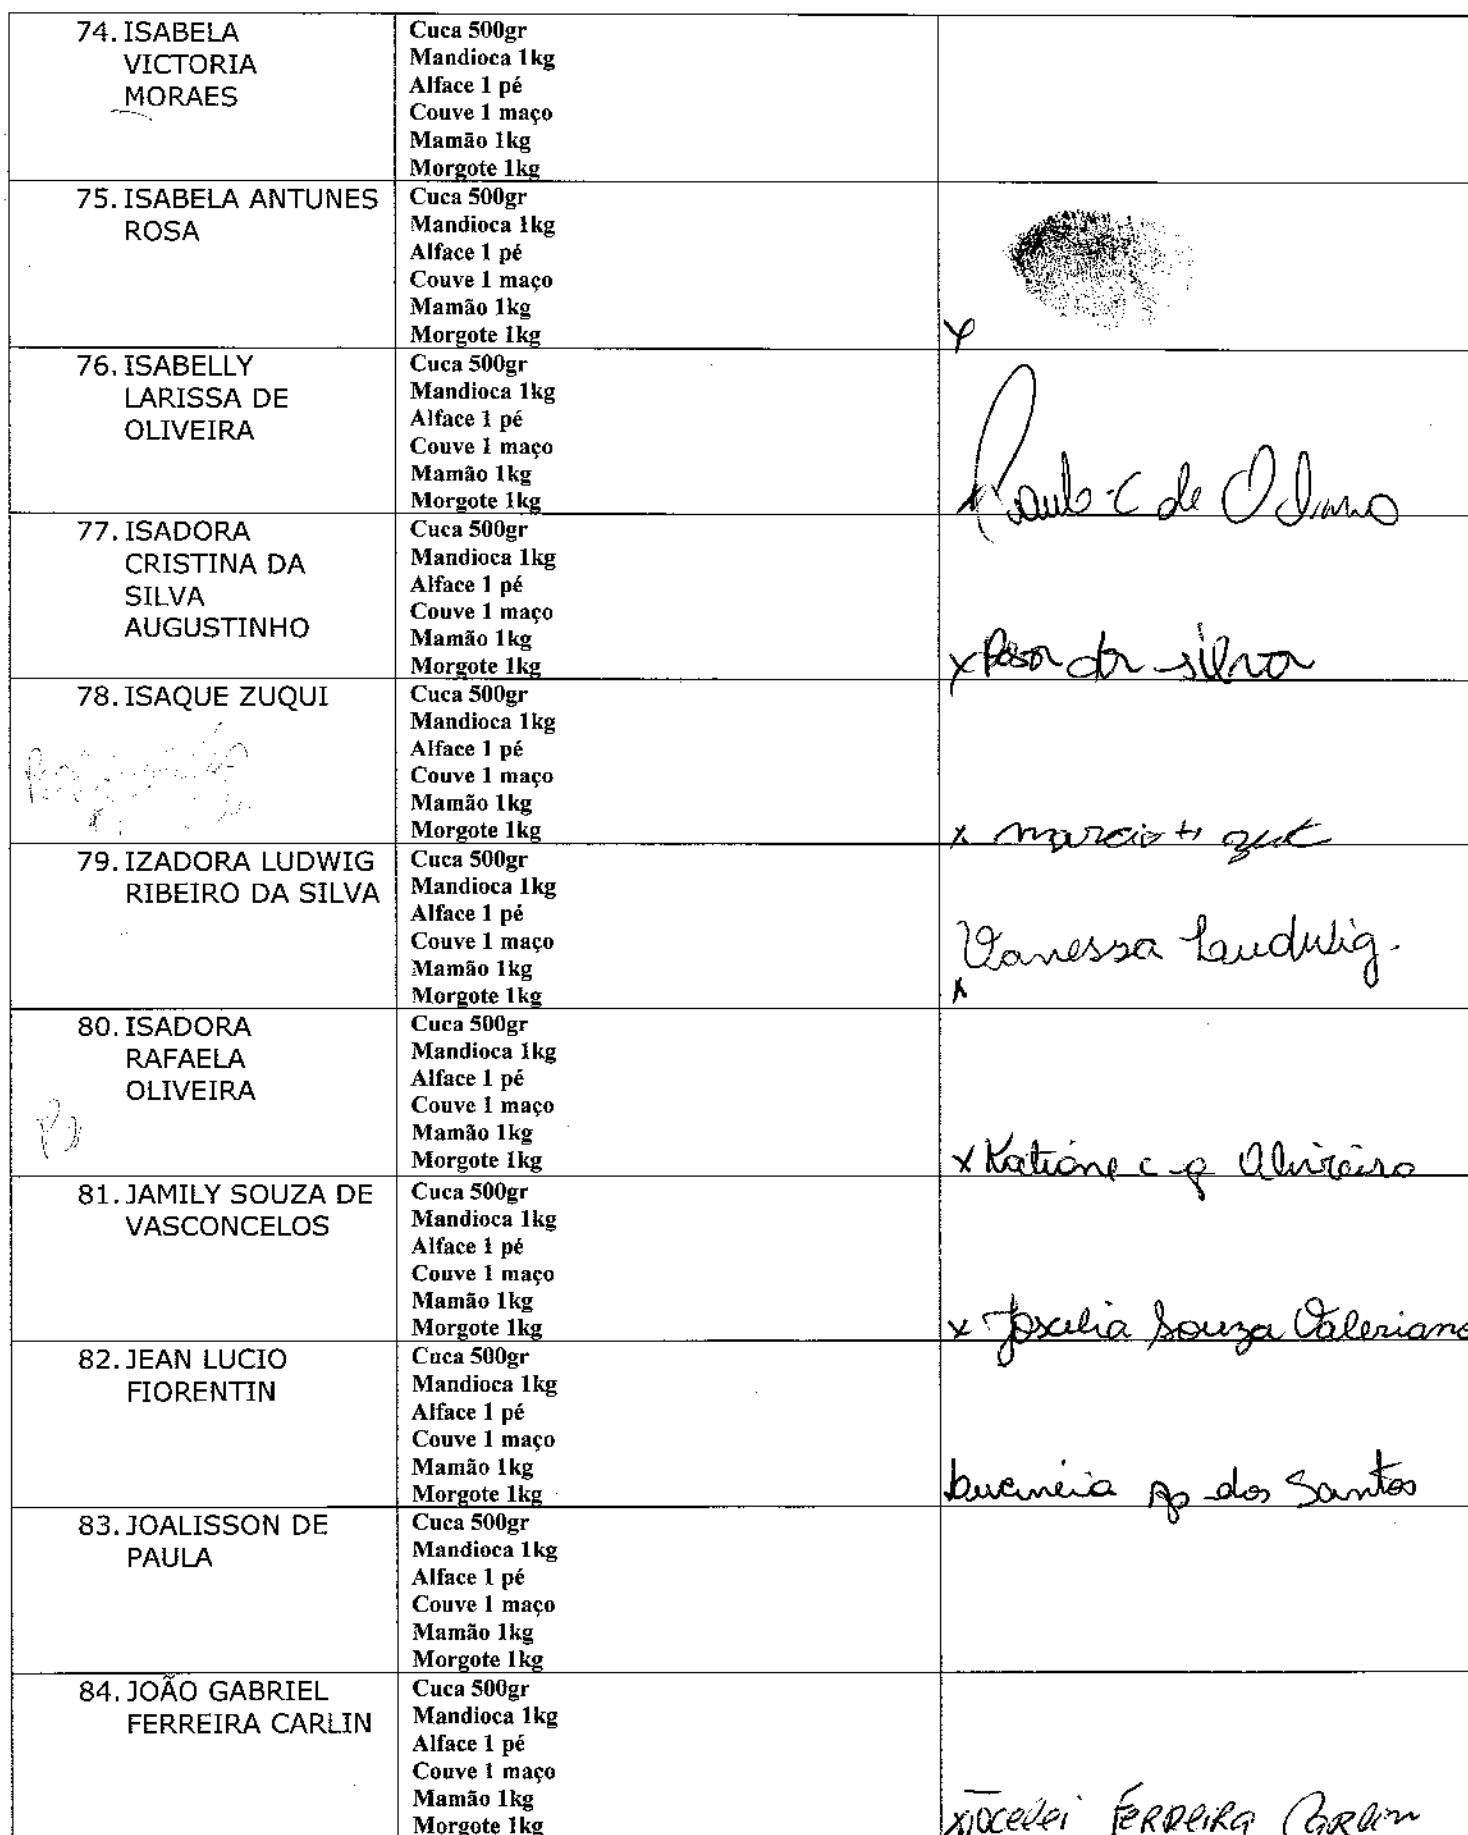 74. ISABELA
VICTORIA
MORAES
Cuca 500gr
Mandioca 1kg
Alface 1 pé
Couve 1 maço
Mamão 1kg
Morgote 1kg
75. ISABELA ANTUNES
ROSA
Cuca 500gr
Mandioca 1kg
Alface 1 pé
Couve 1 maço
Mamão 1kg
Morgote 1kg
x
76. ISABELLY
LARISSA DE
OLIVEIRA
Cuca 500gr
Mandioca 1kg
Alface 1 pé
Couve 1 maço
Mamão 1kg
Morgote 1kg
x Paulo C de
77. ISADORA
CRISTINA DA
SILVA
AUGUSTINHO
Cuca 500gr
Mandioca 1kg
Alface 1 pé
Couve 1 maço
Mamão 1kg
Morgote 1kg
x Rosa da silva
78. ISAQUE ZUQUI
Cuca 500gr
Mandioca 1kg
Alface 1 pé
Couve 1 maço
Mamão 1kg
Morgote 1kg
x marcio
79. IZADORA LUDWIG
RIBEIRO DA SILVA
Cuca 500gr
Mandioca 1kg
Alface 1 pé
Couve 1 maço
Mamão 1kg
Morgote 1kg
x Vanessa Ludwig.
80. ISADORA
RAFAELA
OLIVEIRA
Cuca 500gr
Mandioca 1kg
Alface 1 pé
Couve 1 maço
Mamão 1kg
Morgote 1kg
x Katiane c
81. JAMILY SOUZA DE
VASCONCELOS
Cuca 500gr
Mandioca 1kg
Alface 1 pé
Couve 1 maço
Mamão 1kg
Morgote 1kg
x Joselia Souza Valeriano
82. JEAN LUCIO
FIORENTIN
Cuca 500gr
Mandioca 1kg
Alface 1 pé
Couve 1 maço
Mamão 1kg
Morgote 1kg
Lucineia Ap dos Santos
83. JOALISSON DE
PAULA
Cuca 500gr
Mandioca 1kg
Alface 1 pé
Couve 1 maço
Mamão 1kg
Morgote 1kg
84. JOÃO GABRIEL
FERREIRA CARLIN
Cuca 500gr
Mandioca 1kg
Alface 1 pé
Couve 1 maço
Mamão 1kg
Morgote 1kg
x Jocelei FERREIRA CARLIN